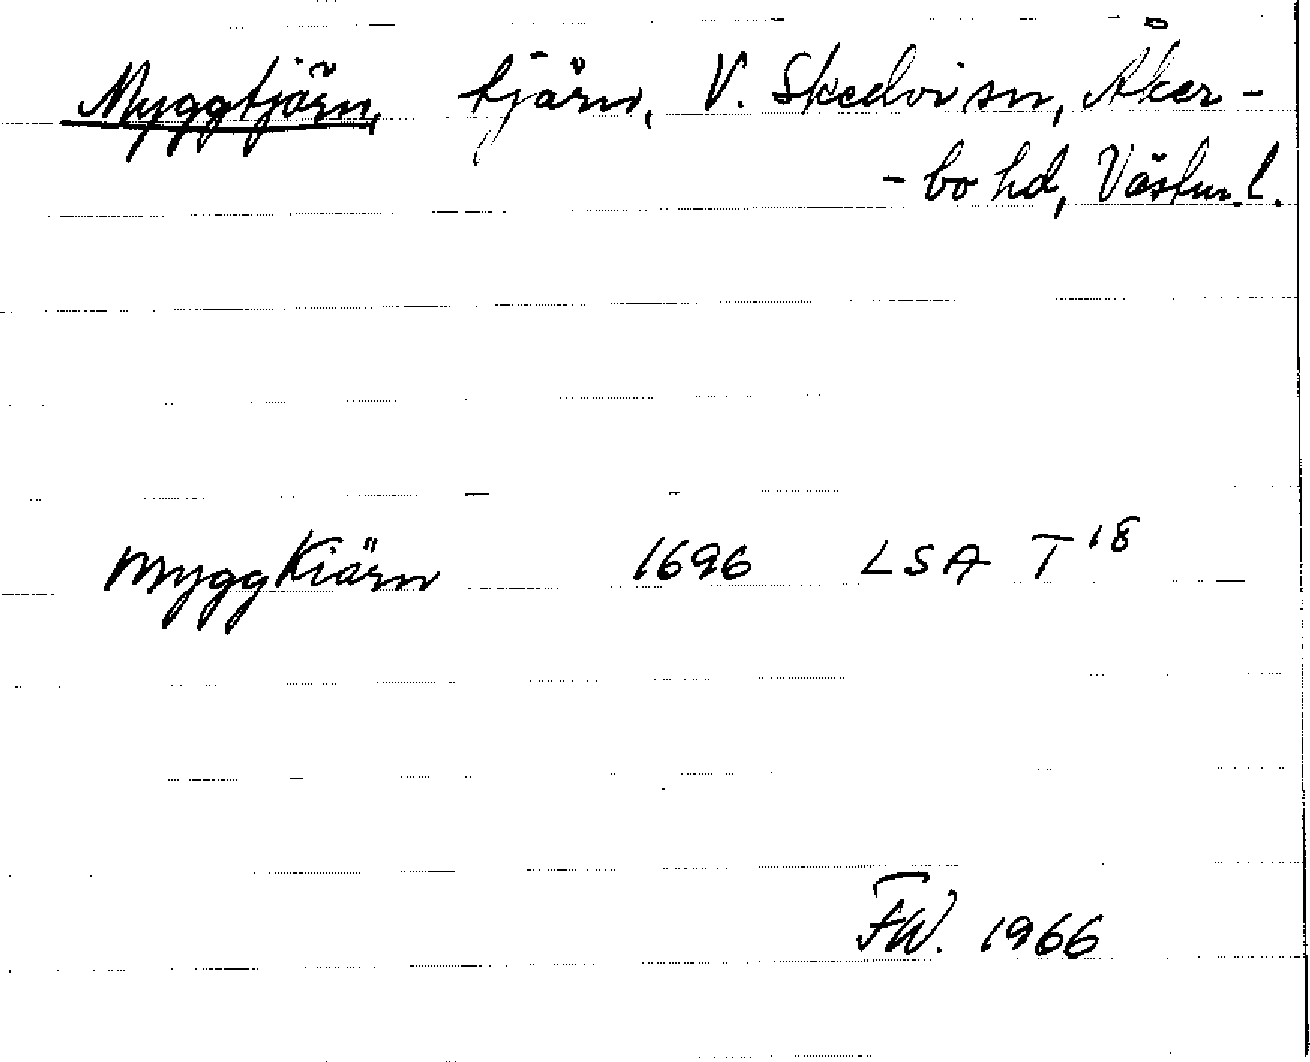 Myggtjärn, tjärn, V. Skedvi sn, Åker-
- bo hd, Västm. l.
MyggKiärn 1696 LSA T 18
FW. 1966